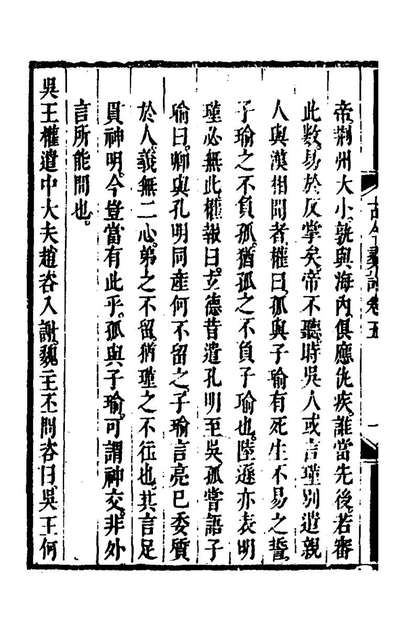 帝。荆州大小。孰與海內。俱應仇疾。誰當先後。若審
此數。易於反掌矣。帝不聽。時吳人或言瑾別遣親
人與漢相聞者。權曰。孤與子瑜有死生不易之誓。
子瑜之不負孤。猶孤之不負子瑜也。陸遜亦表明
瑾必無此。權報曰。玄德昔遣孔明至吳。孤嘗語子
瑜曰。卿與孔明同產。何不留之。子瑜言亮已委質
於人。義無二心。弟之不留。猶瑾之不往也。其言足
貫神明。今豈當有此乎。孤與子瑜。可謂神交。非外
言所能間也。
吳王權遣中大夫趙咨入謝。魏主丕問咨曰。吳王何
卷五
一